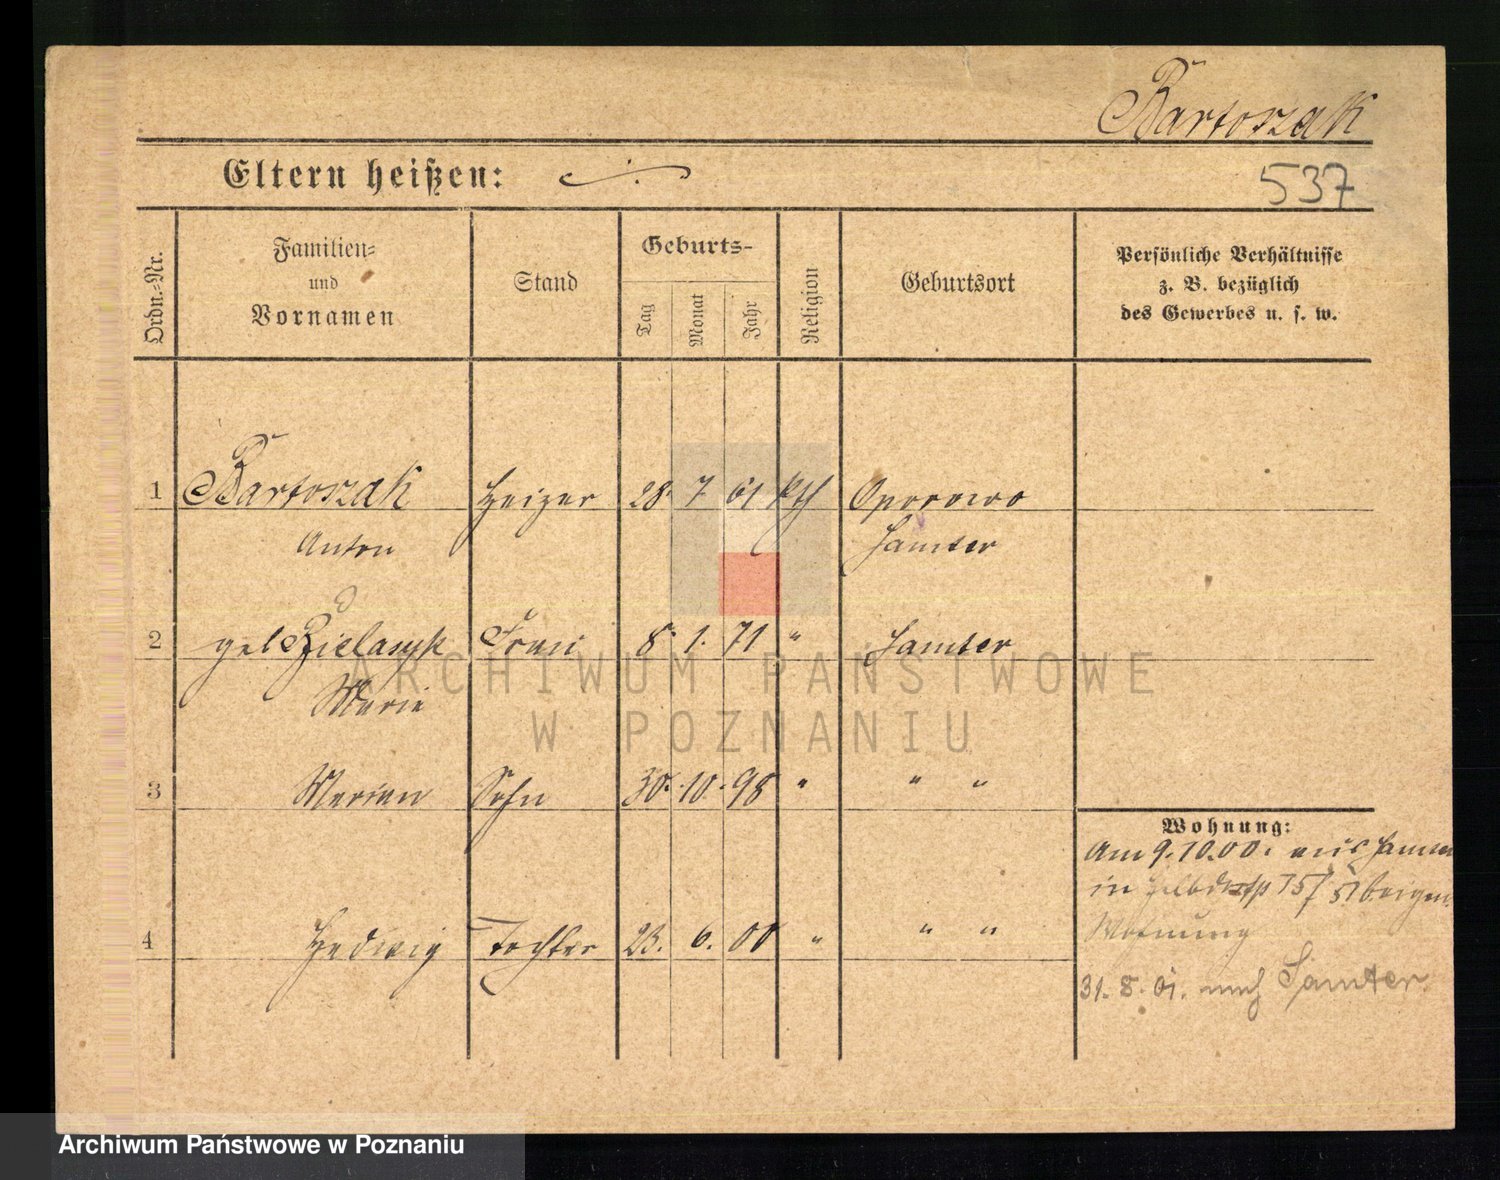 Bartoszak
Eltern heißen:
537
Ordn.-Nr.
Familien-
und
Vornamen
Stand
Geburts-
Tag
Monat
Jahr
Religion
Geburtsort
Persönliche Verhältnisse
z. B. bezüglich
des Gewerbes u. s. w.
1 Bartoszak Heizer 28. 7 61 kth Oporowo
Anton Samter
2 geb Zielasyk Frau 8. 1. 71 " Samter
Marie
3 Marian Sohn 30. 10. 98 " " "
4 Hedwig Tochter 23. 6. 00 " " "
Wohnung:
Am 9.10.00. aus Samter
in 15/
Wohnung
31. 8. 01. nach Samter
ARCHIWUM PAŃSTWOWE
W POZNANIU
Archiwum Państwowe w Poznaniu